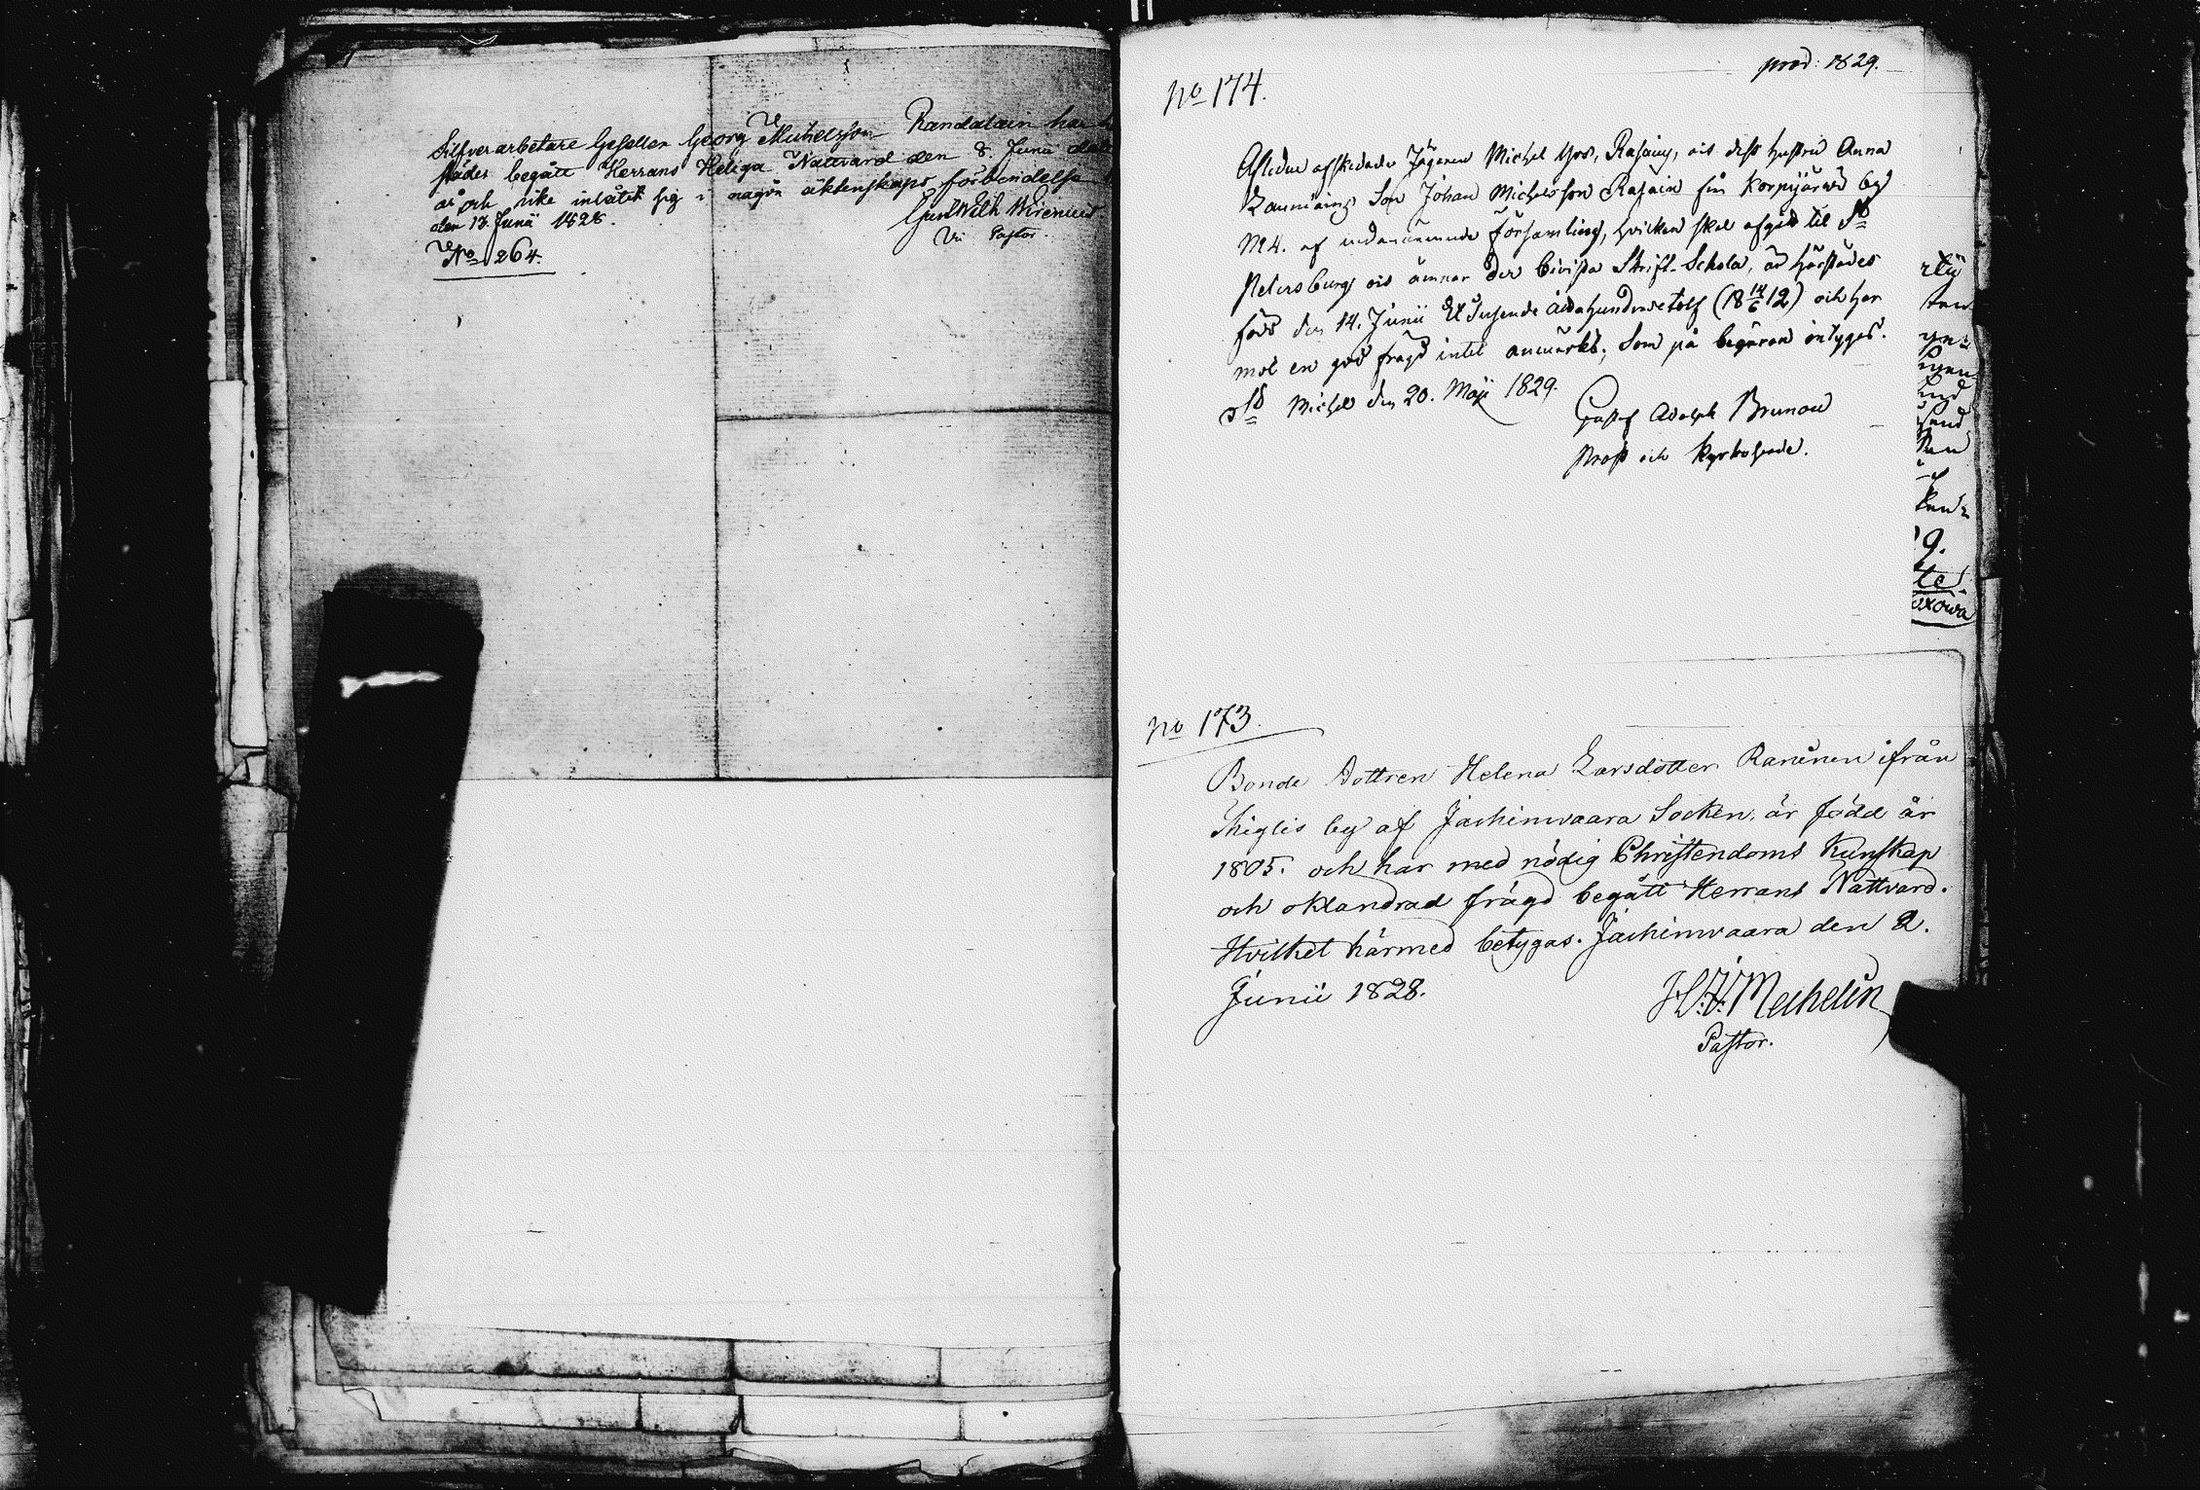 Silfverarbetare Gesellen Georg Michelsson Randalain har
städes begått Herrans Heliga Nattvard den 8. Junii
år och icke inlåtit sig i någon äktenskaps förbindelse
den 13 Junii 1828.
Gust Wilh Wirenius
Vic Pastor.
No 264.
prod: 1829.
No 174.
Afledne afskedade Jägaren Michel Rasains, och dess hustru Anna
Son Johan Michelsson Rasain från Korpijärvi by
No 4. af Församling, hvilken skal afgå til St
Petersburg och ämnar der bevista Skrift-Schola, är härstädes
född den 14. Junii Ett Tusende åttahundradetolf (18 14/6 12) och har
mot en god frägd intet anmärkt; Som på begäran intygas.
St Michel den 20. Maji 1829.
Gustaf Adolph Brunou
Prost och Kyrkoherde.
No 173.
Bonde Dottren Helena Larsdotter Raninen ifrån
by af Jachimvaara Socken, är född år
1805. och har med nödig Christendoms Kunskap
och oklandrad frägd begått Herrans Nattvard.
Hvilket härmed betygas. Jachimvaara den 2.
Junii 1828.
Mechelin
Pastor.